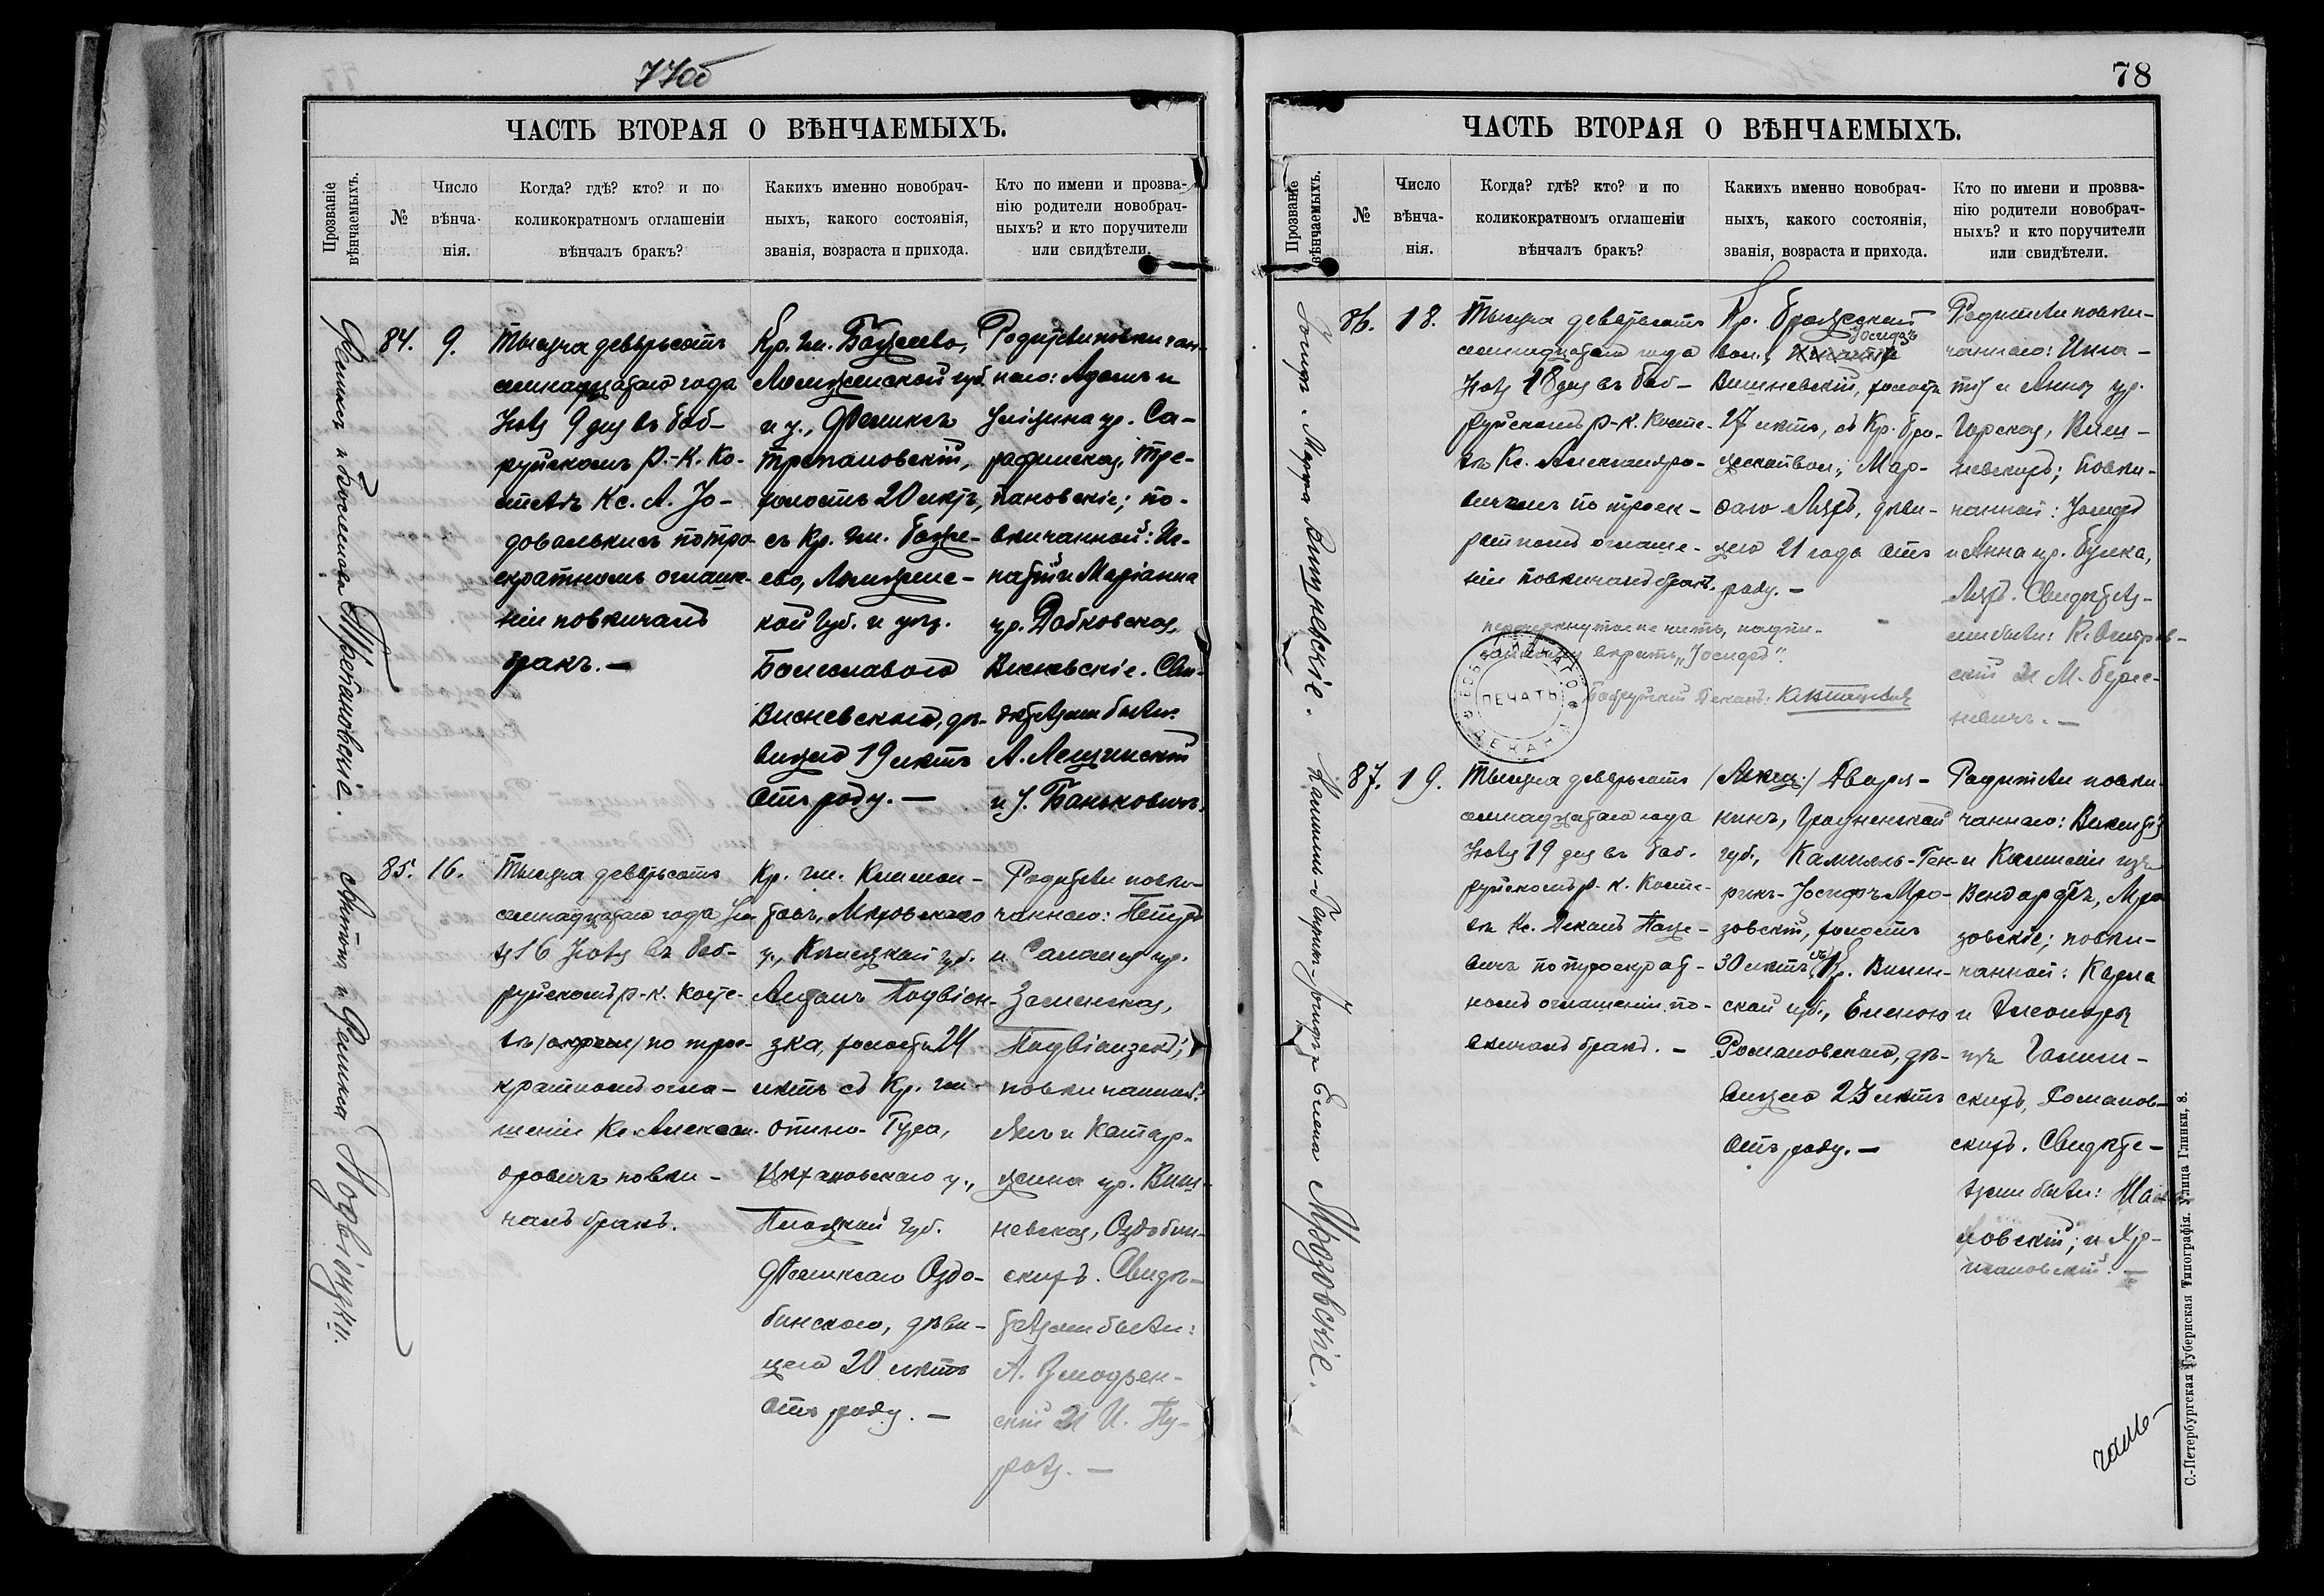 77об
ЧАСТЬ ВТОРАЯ О ВѢНЧАЕМЫХЪ.
Прозваніе вѣнчаемыхъ.
№
Число
вѣнча-
нія.
Когда? гдѣ? кто? и по
коликократномъ оглашеніи
вѣнчалъ бракъ?
Какихъ именно новобрач-
ныхъ, какого состоянія,
званія, возраста и прихода.
Кто по имени и прозва-
нію родители новобрач-
ныхъ? и кто поручители
или свидѣтели.
Феликсъ и Болеслава Трепановскіе.
84.
9.
Тысяча девятьсотъ
семнадцатаго года
Іюля 9 дня въ Боб-
руйскомъ Р.-К. Ко-
стелѣ Кс. А. Іо-
довалькисъ по тро-
екратномъ оглаше-
ніи повѣнчалъ
бракъ. —
Кр. гм.
Ломжинской губ.
и у., Феликсъ
Трепановскій,
холостъ 20 лѣтъ,
съ Кр. гм.
ево, Ломжинс-
кой губ. и уѣз.
Болеславою
Висневскою, дѣ-
вицею 19 лѣтъ
отъ роду. —
Родители повѣнчан-
наго: Адамъ и
ур. Са-
рафинская, Тре-
пановскіе; по-
вѣнчанной: Иг-
натій и Маріанна
ур. Добковская,
Висневскіе. Сви-
дѣтелями были:
А. Лещинскій
и У. Баньковичъ.
Антонъ и Феликса Подвіонзки.
85.
16.
Тысяча девятьсотъ
семнадцатаго года Ію-
ля 16 дня въ Боб-
руйскомъ р.-к. Косте-
лѣ по трое-
кратномъ огла-
шеніи Кс. Алексан-
дровичъ повѣн-
чалъ бракъ.
Кр. гм. Климон-
товъ, Мѣховскаго
у., Кѣлецкой губ.
Антонъ Подвіон-
зка, холостъ 24
лѣтъ съ Кр. гм.
Опино-Гура,
Цѣхановскаго у.,
Плоцкой губ.
Феликсою Оздо-
бинскою, дѣви-
цею 20 лѣтъ
отъ роду. —
Родители повѣн-
чаннаго: Петръ
и Саломея ур.
Заменская,
Подвіонзекъ;
повѣнчанной:
Янъ и Катар-
жина ур. Виш-
невская, Оздобин-
скихъ. Свидѣ-
телями были:
скій и И.
78
ЧАСТЬ ВТОРАЯ О ВѢНЧАЕМЫХЪ.
Прозваніе вѣнчаемыхъ.
№
Число
вѣнча-
нія.
Когда? гдѣ? кто? и по
коликократномъ оглашеніи
вѣнчалъ бракъ?
Какихъ именно новобрач-
ныхъ, какого состоянія,
званія, возраста и прихода.
Кто по имени и прозва-
нію родители новобрач-
ныхъ? и кто поручители
или свидѣтели.
Іосифъ и Марфа Вишневскіе.
86.
18.
Тысяча девятьсотъ
семнадцатаго года
Іюля 18 дня въ Боб-
руйскомъ Р.-К. Косте-
лѣ Кс. Александро-
вичемъ по троек-
ратномъ оглаше-
ніи повѣнчанъ бракъ.
Кр. Брожской
вол., Іосифъ
Вишневскій, холостъ
27 лѣтъ, съ Кр. Бро-
жской вол., Мар-
фою Ляхъ, дѣви-
цею 21 года отъ
роду. —
Родители повѣн-
чаннаго: Игна-
тій и Анна ур.
Горская, Виш-
невскихъ; повѣн-
чанной: Іосифъ
и Анна ур. Булка,
Ляхъ. Свидѣтеля-
ми были:
скій и М. Бере-
невичъ. —
перечеркнутое не чит., надпи-
санному вѣрить „Іосифъ".
Бобруйскій Деканъ:
ПЕЧАТЬ
ДЕКАНА
Камилль-Генрикъ-Іосифъ и Елена Мрозовскіе.
87.
19.
Тысяча девятьсотъ
семнадцатаго года
Іюля 19 дня въ Боб-
руйскомъ р.-к. Косте-
лѣ Кс. Деканъ
вичъ по троекрат-
номъ оглашеніи по-
вѣнчалъ бракъ. —
Дворя-
нинъ, Гродненской
губ., Камилль-Ген-
рикъ-Іосифъ Мро-
зовскій, холостъ
30 лѣтъ, съ Кр. Вилен-
ской губ., Еленою
Романовскою, дѣ-
вицею 23 лѣтъ
отъ роду. —
Родители повѣн-
чаннаго: Викентій
и Камиллы изъ
Вендорфъ, Мро-
зовскіе; повѣн-
чанной: Карла
и Элеоноры
изъ Галин-
скихъ, Романов-
скихъ. Свидѣте-
лями были:
ловскій; и
С.-Петербургская Губернская Типографія. Улица Глинки, 8.